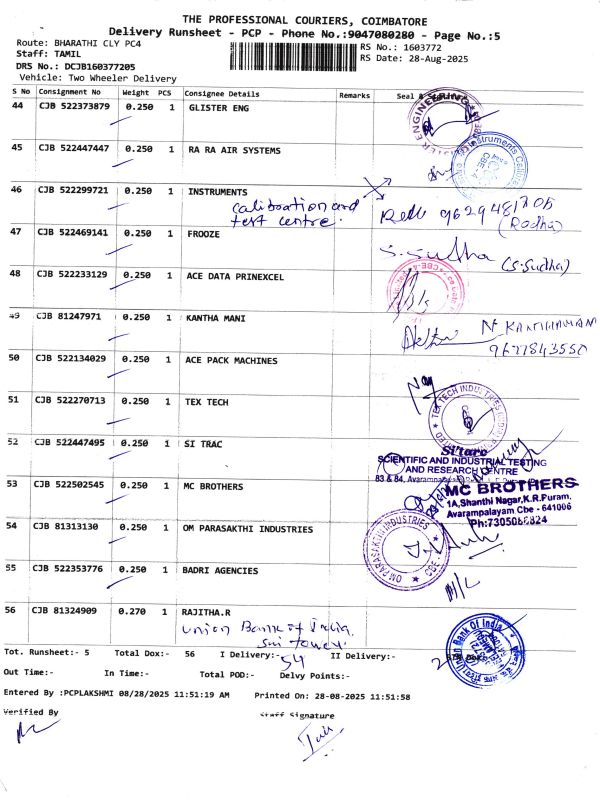 THE PROFESSIONAL COURIERS, COIMBATORE
Delivery Runsheet - PCP - Phone No.:9047080280 - Page No.:5
Route: BHARATHI CLY PC4
RS No.: 1603772
Staff: TAMIL
RS Date: 28-Aug-2025
DRS No.: DCJB160377205
Vehicle: Two Wheeler Delivery
S No Consignment No Weight PCS Consignee Details Remarks Seal &
44 CJB 522373879 0.250 1 GLISTER ENG
45 CJB 522447447 0.250 1 RA RA AIR SYSTEMS
46 CJB 522299721 0.250 1 INSTRUMENTS
calibration and
test centre.
9629481205
(Radha)
47 CJB 522469141 0.250 1 FROOZE
S. Sudha
(S. Sudha)
48 CJB 522233129 0.250 1 ACE DATA PRINEXCEL
49 CJB 81247971 0.250 1 KANTHA MANI
N KANTHAMANI
9677843550
50 CJB 522134029 0.250 1 ACE PACK MACHINES
51 CJB 522270713 0.250 1 TEX TECH
TEX TECH INDUSTRIES
52 CJB 522447495 0.250 1 SI TRAC
SCIENTIFIC AND INDUSTRIAL TESTING
AND RESEARCH CENTRE
83 & 84,
53 CJB 522502545 0.250 1 MC BROTHERS
MC BROTHERS
1A,Shanthi Nagar,K.R.Puram.
Avarampalayam Cbe - 641006
54 CJB 81313130 0.250 1 OM PARASAKTHI INDUSTRIES
OM PARASAKTHI INDUSTRIES
55 CJB 522353776 0.250 1 BADRI AGENCIES
56 CJB 81324909 0.270 1 RAJITHA.R
Union Bank of India
Union Bank Of India
Tot. Runsheet:- 5 Total Dox:- 56 I Delivery:- II Delivery:-
54
Out Time:- In Time:- Total POD:- Delvy Points:-
Entered By :PCPLAKSHMI 08/28/2025 11:51:19 AM Printed On: 28-08-2025 11:51:58
Verified By Staff Signature